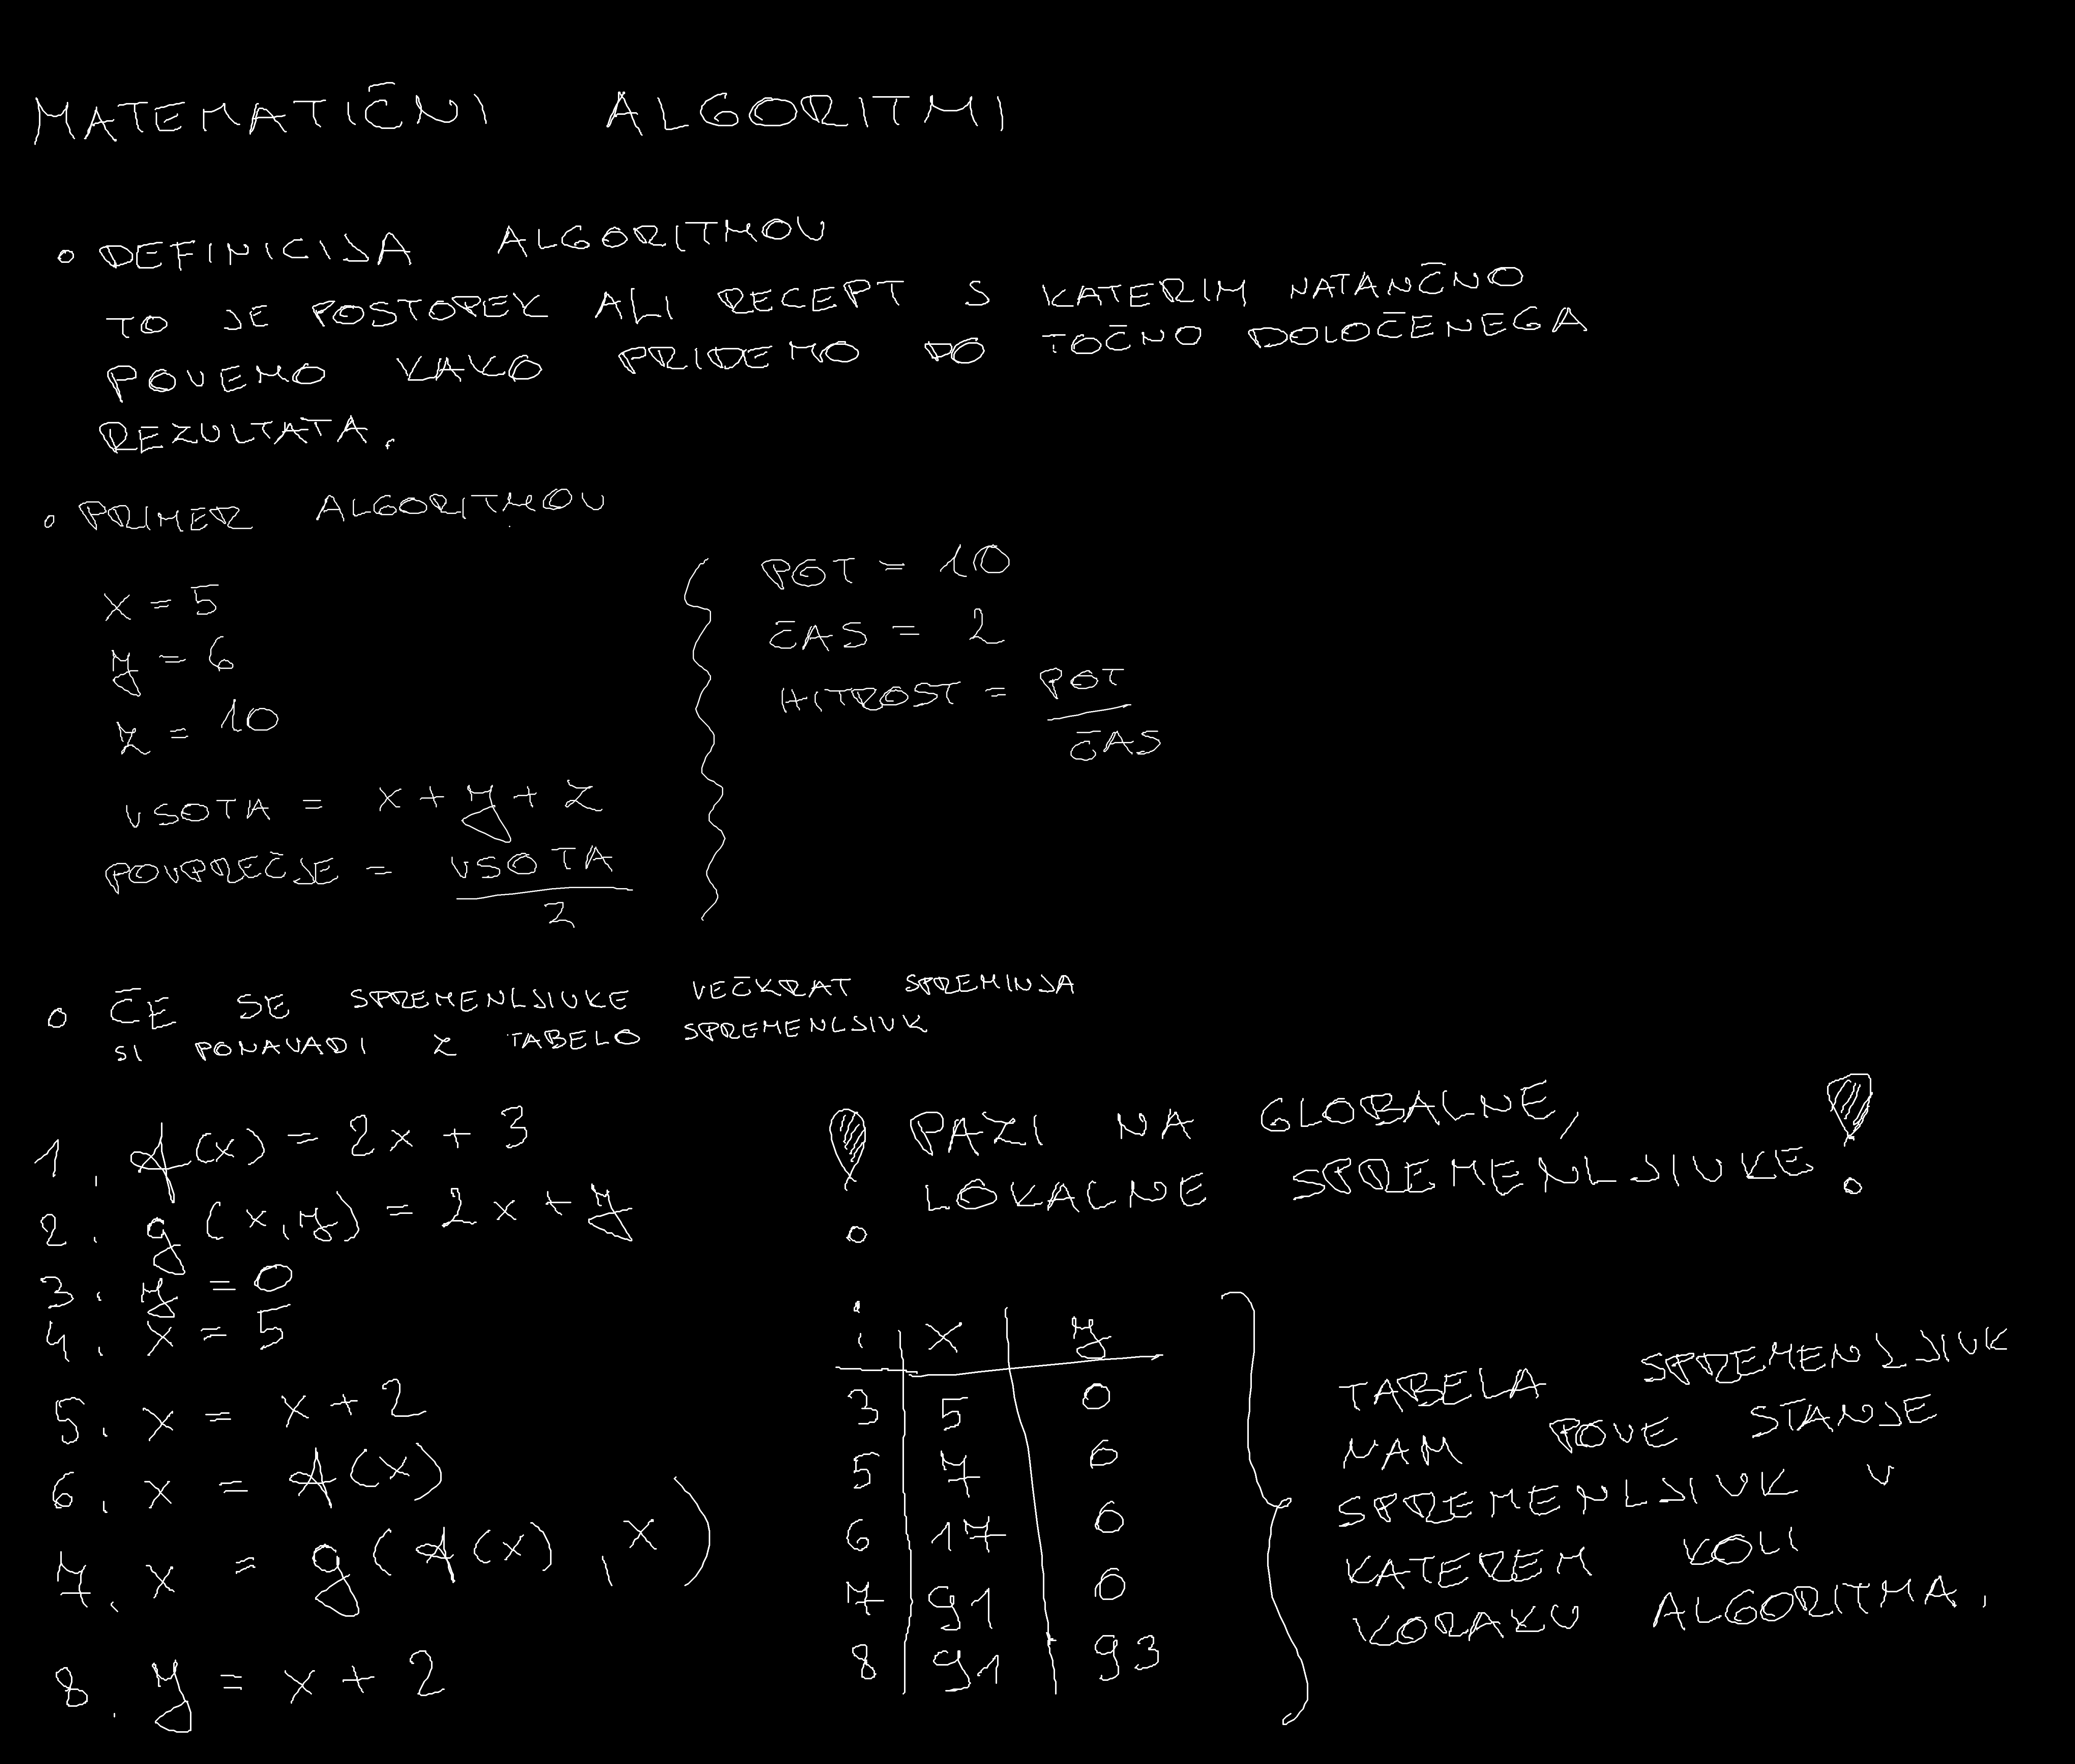 MATEMATIČNI ALGORITMI
• DEFINICIJA ALGORITMOV
TO JE POSTOPEK ALI RECEPT S KATERIM NATANČNO
POVEMO KAKO PRIDEMO DO TOČNO DOLOČENEGA
REZULTATA.
• PRIMER ALGORITMOV
x = 5
y = 6
z = 10
VSOTA = x + y + z
POVPREČJE = VSOTA / 2
POT = 10
ČAS = 2
HITROST = POT / ČAS
• ČE SE SPREMENLJIVKE VEČKRAT SPREMINJA
SI PONAVADI Z TABELO SPREMENLJIVK
1. f(x) = 2x + 3
2. g(x,y) = 2x + y
3. y = 0
4. x = 5
5. x = x + 2
6. x = f(x)
7. x = g(f(x), x)
8. y = x + 2
! PAZI NA GLOBALNE,
LOKALNE SPREMENLJIVKE !
i | x | y
3 | 5 | 0
5 | 7 | 0
6 | 17 | 0
7 | 91 | 0
8 | 91 | 93
TABELA SPREMENLJIVK
NAM POVE STANJE
SPREMENLJIVK V
KATEREM KOLI
KORAKU ALGORITMA.